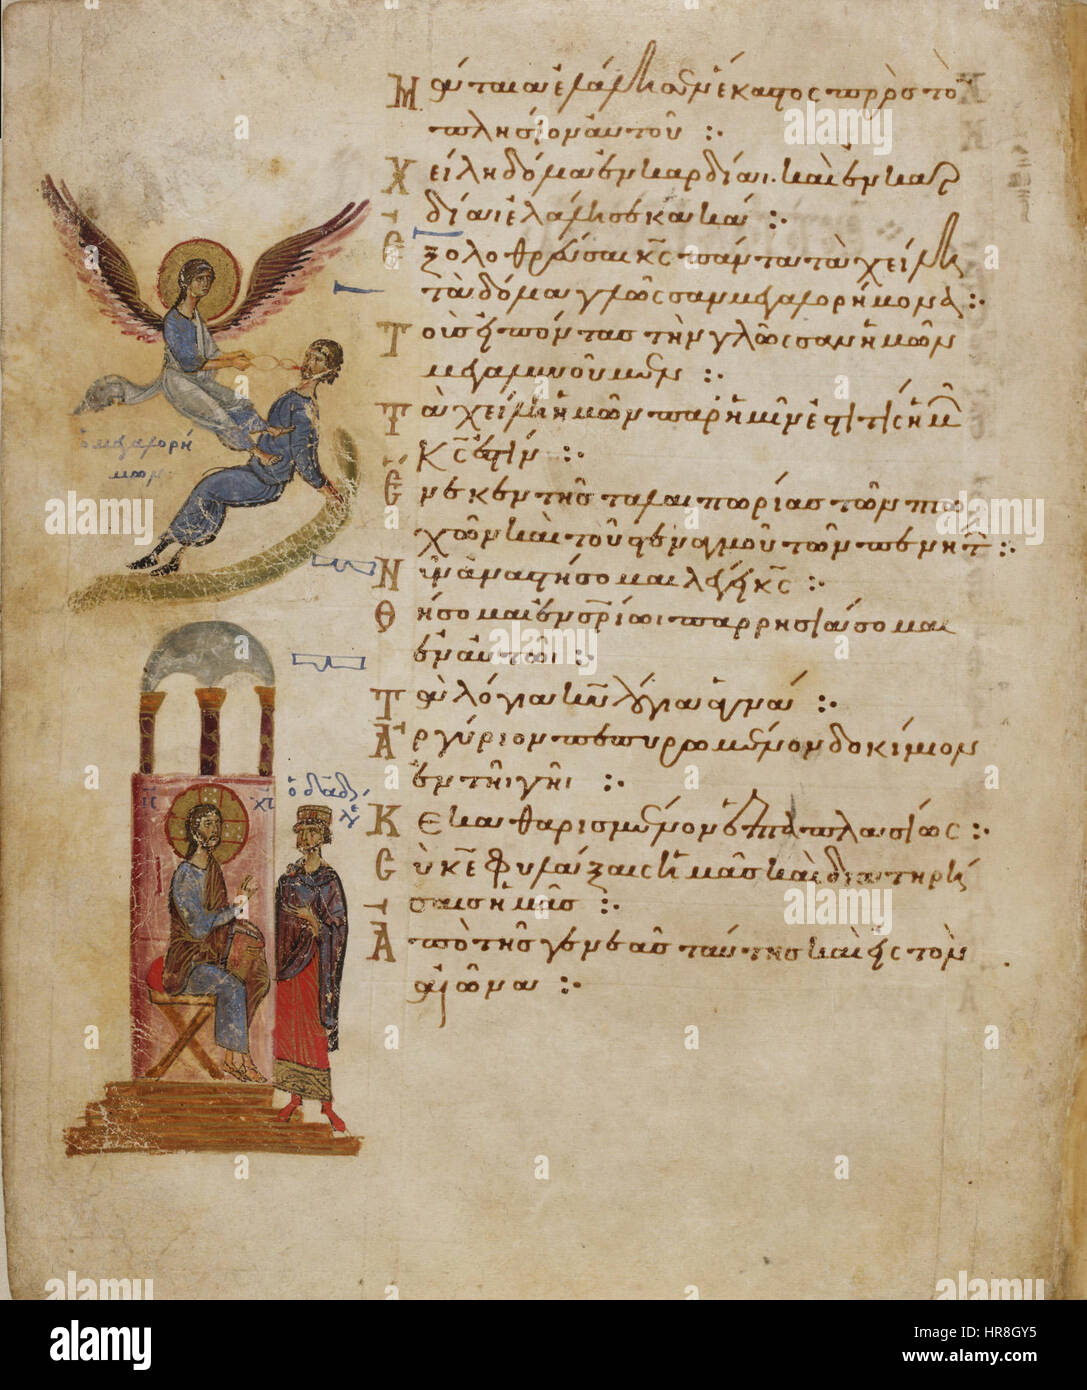 Μάταια ἐλάλησεν ἕκαστος πρὸς τὸ
πλησίον αὐτοῦ :·
Χείλη δόλια ἐν καρδίαι· καὶ ἐν καρ
δίαι ἐλάλησε κακά :·
Ἐξολοθρεύσαι κ̅ς̅ πάντα τὰ χείλη
τὰ δόλια γλῶσσαν μεγαλορήμονα :·
Τοὺς εἰπόντας τὴν γλῶσσαν ἡμῶν
μεγαλυνοῦμεν :·
Τὰ χείλη ἡμῶν παρ' ἡμῖν ἐστὶ τίς ἡμῶ
κ̅ς̅ ἐστίν :·
Ἕνεκεν τῆς ταλαιπωρίας τῶν πτω
χῶν καὶ τοῦ στεναγμοῦ τῶν πενητ :·
Νῦν ἀναστήσομαι λέγει κ̅ς̅ :·
Θήσομαι ἐν σ̅ρ̅ίωι παρρησιάσομαι
ἐν αὐτῶι :·
Τὰ λόγια κ̅υ̅ λόγια ἁγνά :·
Ἀργύριον πεπυρωμένον δοκίμιον
ἐν τῆι γῆι :·
Κεκαθαρισμένον ἑπταπλασίως :·
Σὺ κ̅ε̅ φυλάξαις ἡμᾶς καὶ διατηρή
σαις ἡμᾶς :·
Ἀπὸ τῆς γενεᾶς ταύτης καὶ εἰς τὸν
αἰῶνα :·
ὁ μεγαλορή
μων:
ΙC ΧC
ὁ δα̅δ̅
λεγ
alamy
Image ID: HR8GY5
www.alamy.com